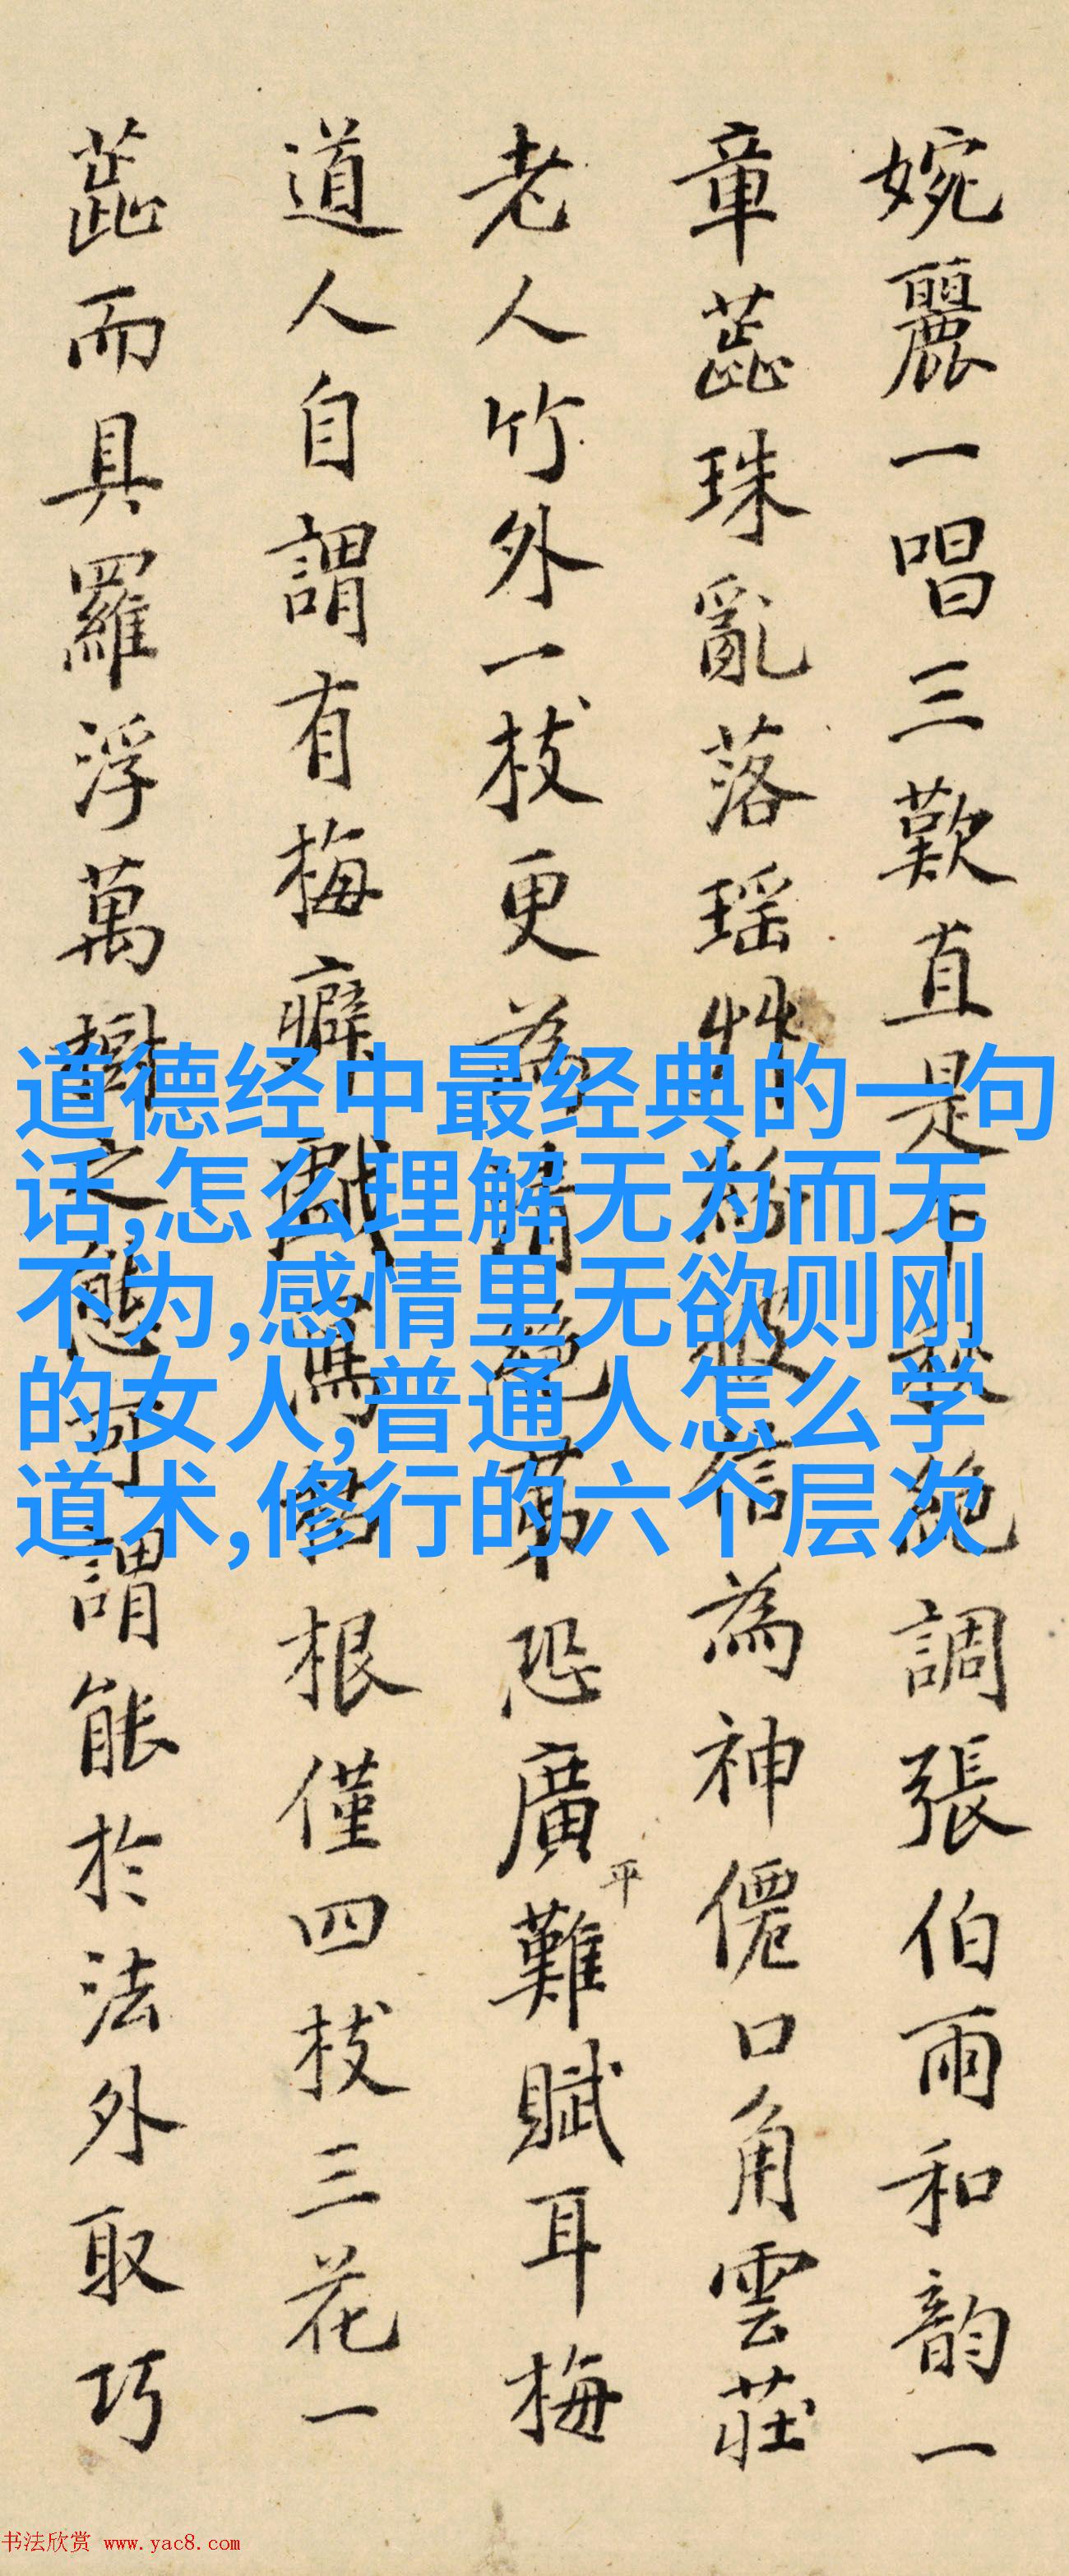 婉麗一唱三歎直是
調張伯雨和韵一
章蕊珠亂落瑶艸
信為神僊口角雲莊
老人竹外一枝更為
恐廣平難賦耳梅
道人自謂有梅癖戲寫
根僅四枝三花一
蕊而具羅浮萬樹之態可謂能於法外取巧
道德经中最经典的一句
话,怎么理解无为而无
不为,感情里无欲则刚
的女人,普通人怎么学
道术,修行的六个层次
书法欣赏 www.yac8.com